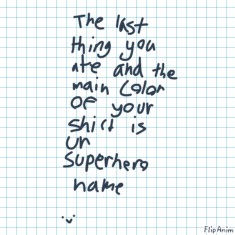 The last
thing you
Ate and the
main Color
OF your
shirt is
Ur
Superhero
name
:)
FlipAnim